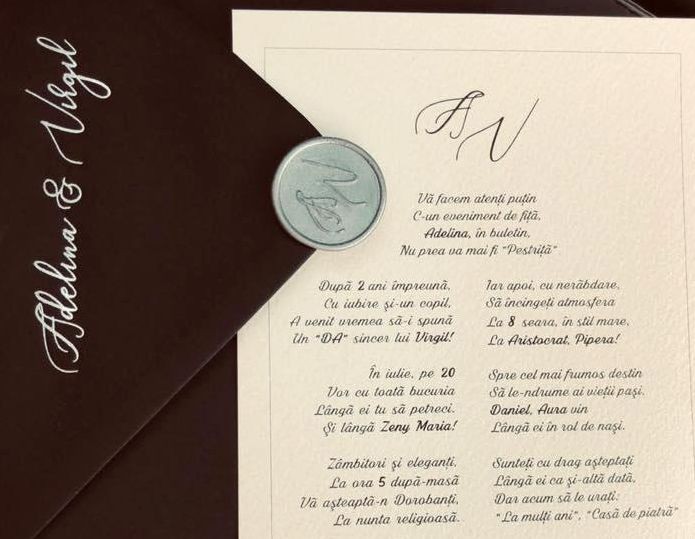 Adelina & Virgil
A V
Vă facem atenți puțin
C-un eveniment de fiță,
Adelina, în buletin,
Nu prea va mai fi "Pestriță"
După 2 ani împreună,
Cu iubire și-un copil,
A venit vremea să-i spună
Un "DA" sincer lui Virgil!
În iulie, pe 20
Vor cu toată bucuria
Lângă ei tu să petreci.
Și lângă Zeny Maria!
Zâmbitori și eleganți,
La ora 5 după-masă
Vă așteaptă-n Dorobanți,
La nunta religioasă.
Iar apoi, cu nerăbdare,
Să încingeți atmosfera
La 8 seara, în stil mare,
La Aristocrat, Pipera!
Spre cel mai frumos destin
Să le-ndrume ai vieții pași,
Daniel, Aura vin
Lângă ei în rol de nași.
Sunteți cu drag așteptați
Lângă ei ca și-altă dată,
Dar acum să le urați:
"La mulți ani", "Casă de piatră"